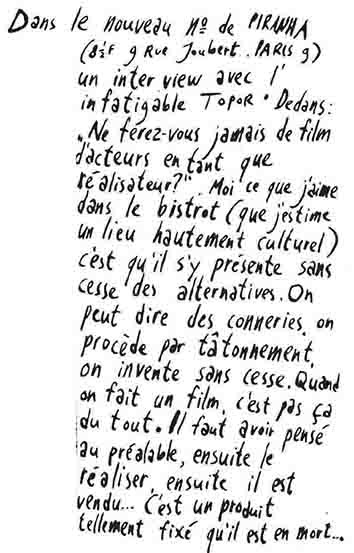 Dans le nouveau nº de PIRANHA
(8½F 9 Rue Joubert. PARIS 9)
un interview avec l'
infatigable TOPOR. Dedans:
„Ne ferez-vous jamais de film
d'acteurs en tant que
réalisateur?". Moi ce que j'aime
dans le bistrot (que j'estime
un lieu hautement culturel)
c'est qu'il s'y présente sans
cesse des alternatives. On
peut dire des conneries, on
procède par tâtonnement,
on invente sans cesse. Quand
on fait un film, c'est pas ça
du tout. Il faut avoir pensé
au préalable, ensuite le
réaliser, ensuite il est
vendu... C'est un produit
tellement fixé qu'il est en mort...